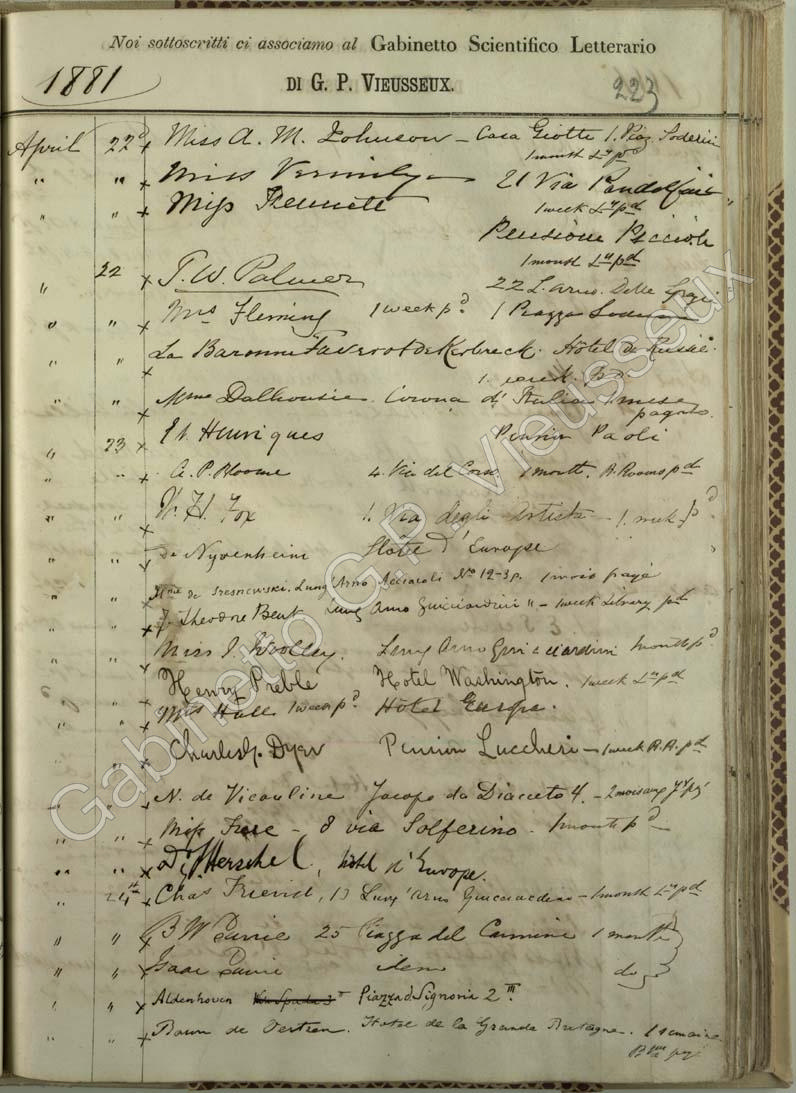 Noi sottoscritti ci associamo al Gabinetto Scientifico Letterario
1881 DI G. P. VIEUSSEUX. 223
April 22d x Miss A. M. Johnson – Casa Giotti 1. Piaz. Soderini
1 month Ly pd
" " x Miss Vermily – 21 Via Pandolfini
" " x Miss 1 week Ly pd
Pensione Piccioli
1 month Ly pd
" 22 x T. W. Palmer 22 L. Arno. Delle Grazie
" " x Mrs Fleming 1 week pd. 1 Piazza Soderini
" " La Baronne Faverot de Kerbreck. Hôtel de Russie.
x 1. week. pd.
" " x Mme Dalhousie. Corona d'Italia 1 mese
pagato.
" 23 x Henriques Pension Paoli
" " x A. P. 4. Via del Corso. 1 month. R. Rooms pd
" " x W. H. Fox 1. Via degli Artisti – 1. week pd
" " x de Nyvenheim Hotel d'Europe
x Mme de Sresnewski. Lung'Arno Acciaioli No 12–3p. 1 mois payé
" " x J. Theodore Bent Lung Arno Guicciardini " – 1 week Library pd
" " x Miss J. Woolley. Lung Arno Guicciardini 1 month pd
" " x Henry Preble Hotel Washington. 1 week Ly pd
" " x Miss Hall 1 week pd. Hôtel Europe.
" " x Charles G. Dyer Pension Luccheri – 1 week R.R. pd
" " x N. de Vicouline Jacopo da Diacceto 4. – 2 mois
" " x Miss – 8 via Solferino. 1 month pd
" " x Herschel, hôtel d'Europe.
" 24th x Chas Friend, 13 Lung'Arno Guicciardini – 1 month Ly pd
" " x B W 25 Piazza del Carmine 1 month
" " x Isaac idem do
" " x Aldenhoven Via Spada 3 Piazza d. Signoria 2 III.
" " x Baron de Hotel de la Grande Bretagne. 1 semaine.